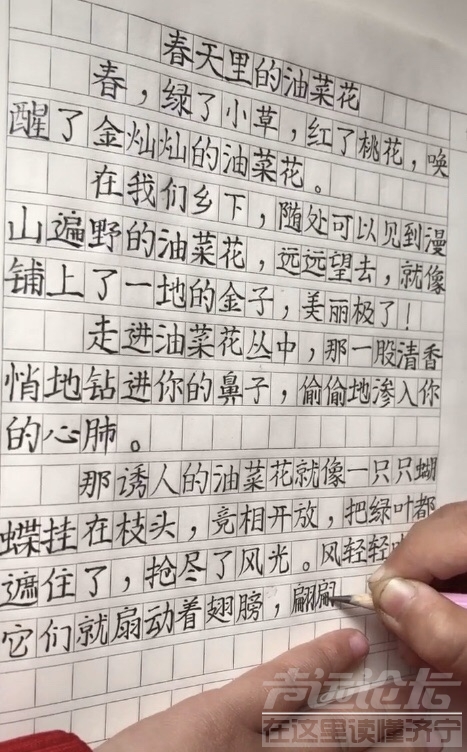 春天里的油菜花
春，绿了小草，红了桃花，唤
醒了金灿灿的油菜花。
在我们乡下，随处可以见到漫
山遍野的油菜花，远远望去，就像
铺上了一地的金子，美丽极了！
走进油菜花丛中，那一股清香
悄地钻进你的鼻子，偷偷地渗入你
的心肺。
那诱人的油菜花就像一只只蝴
蝶挂在枝头，竞相开放，把绿叶都
遮住了，抢尽了风光。风轻轻
它们就扇动着翅膀，翩
声远论坛
在这里读懂济宁